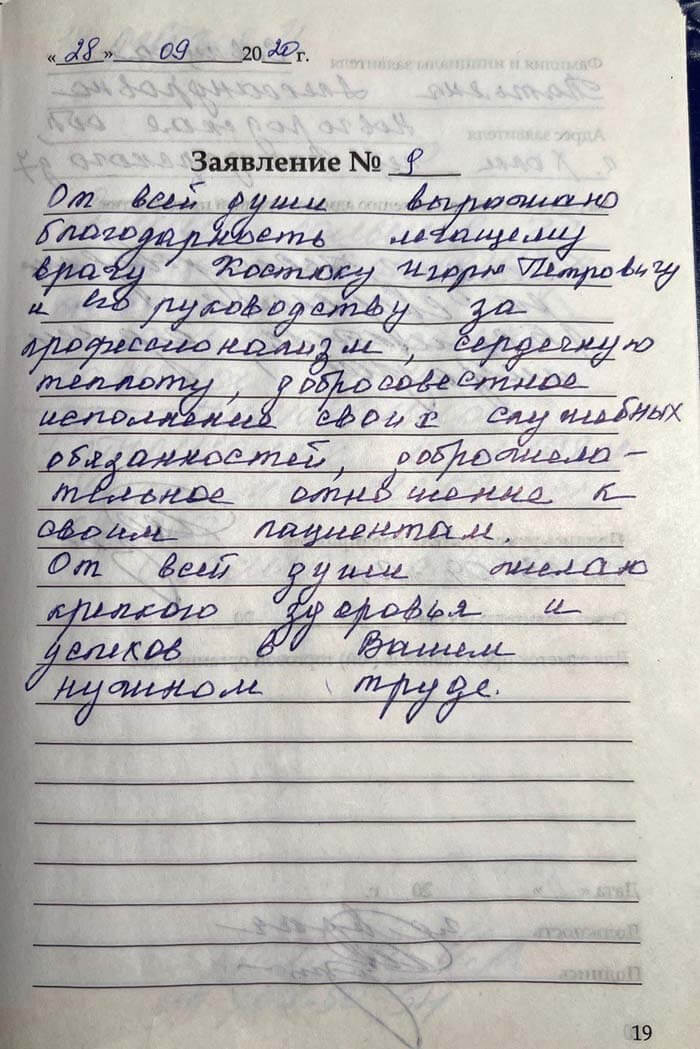 «28» 09 2020 г.
Заявление № 9
От всей души выражаю
благодарность лечащему
врачу Костюку Игорю Петровичу
и его руководству за
профессионализм, сердечную
теплоту, добросовестное
исполнение своих служебных
обязанностей, доброжела-
тельное отношение к
своим пациентам.
От всей души желаю
крепкого здоровья и
успехов в Вашем
нужном труде.
19